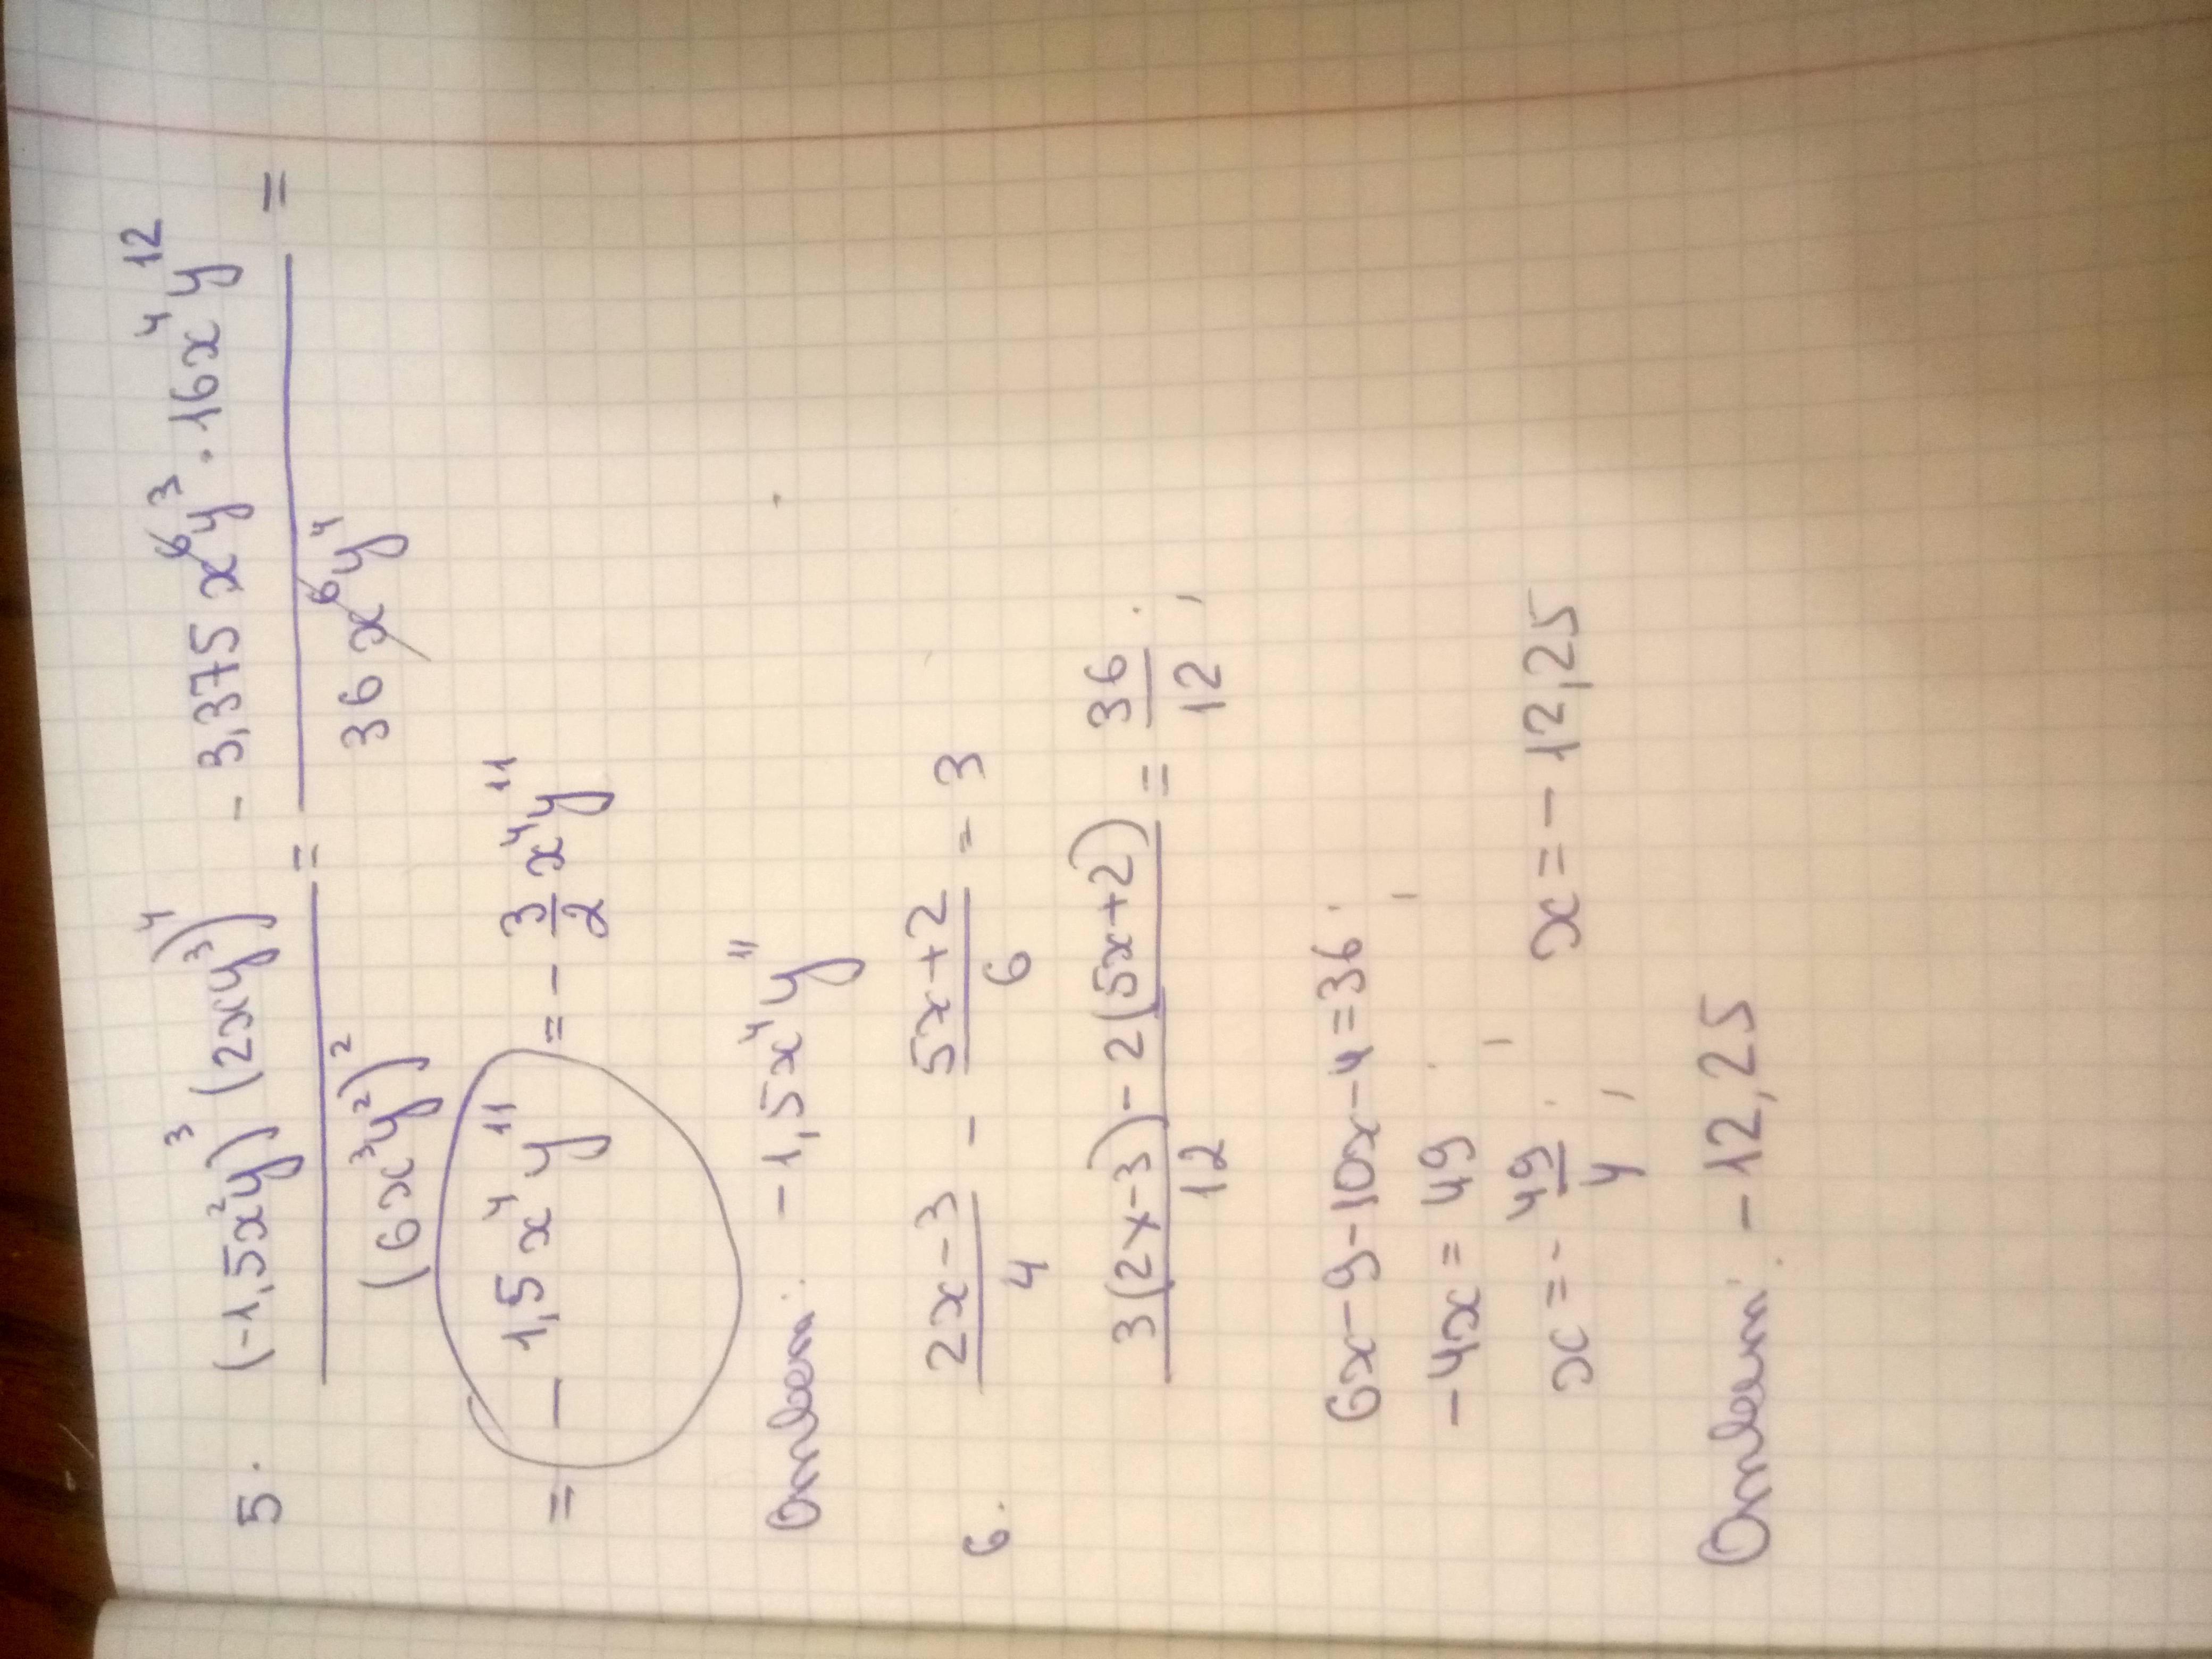 5. (-1,5x²y)³(2xy³)⁴ / (6x³y²)² = -3,375x⁶y³ · 16x⁴y¹² / 36x⁶y⁴ =
= -1,5x⁴y¹¹ = -3/2 x⁴y¹¹
Ответ: -1,5x⁴y¹¹
6. 2x-3 / 4 - 5x+2 / 6 = 3
3(2x-3)-2(5x+2) / 12 = 36 / 12 ;
6x-9-10x-4=36 ;
-4x=49 ;
x=-49/4 ; x=-12,25
Ответ: -12,25